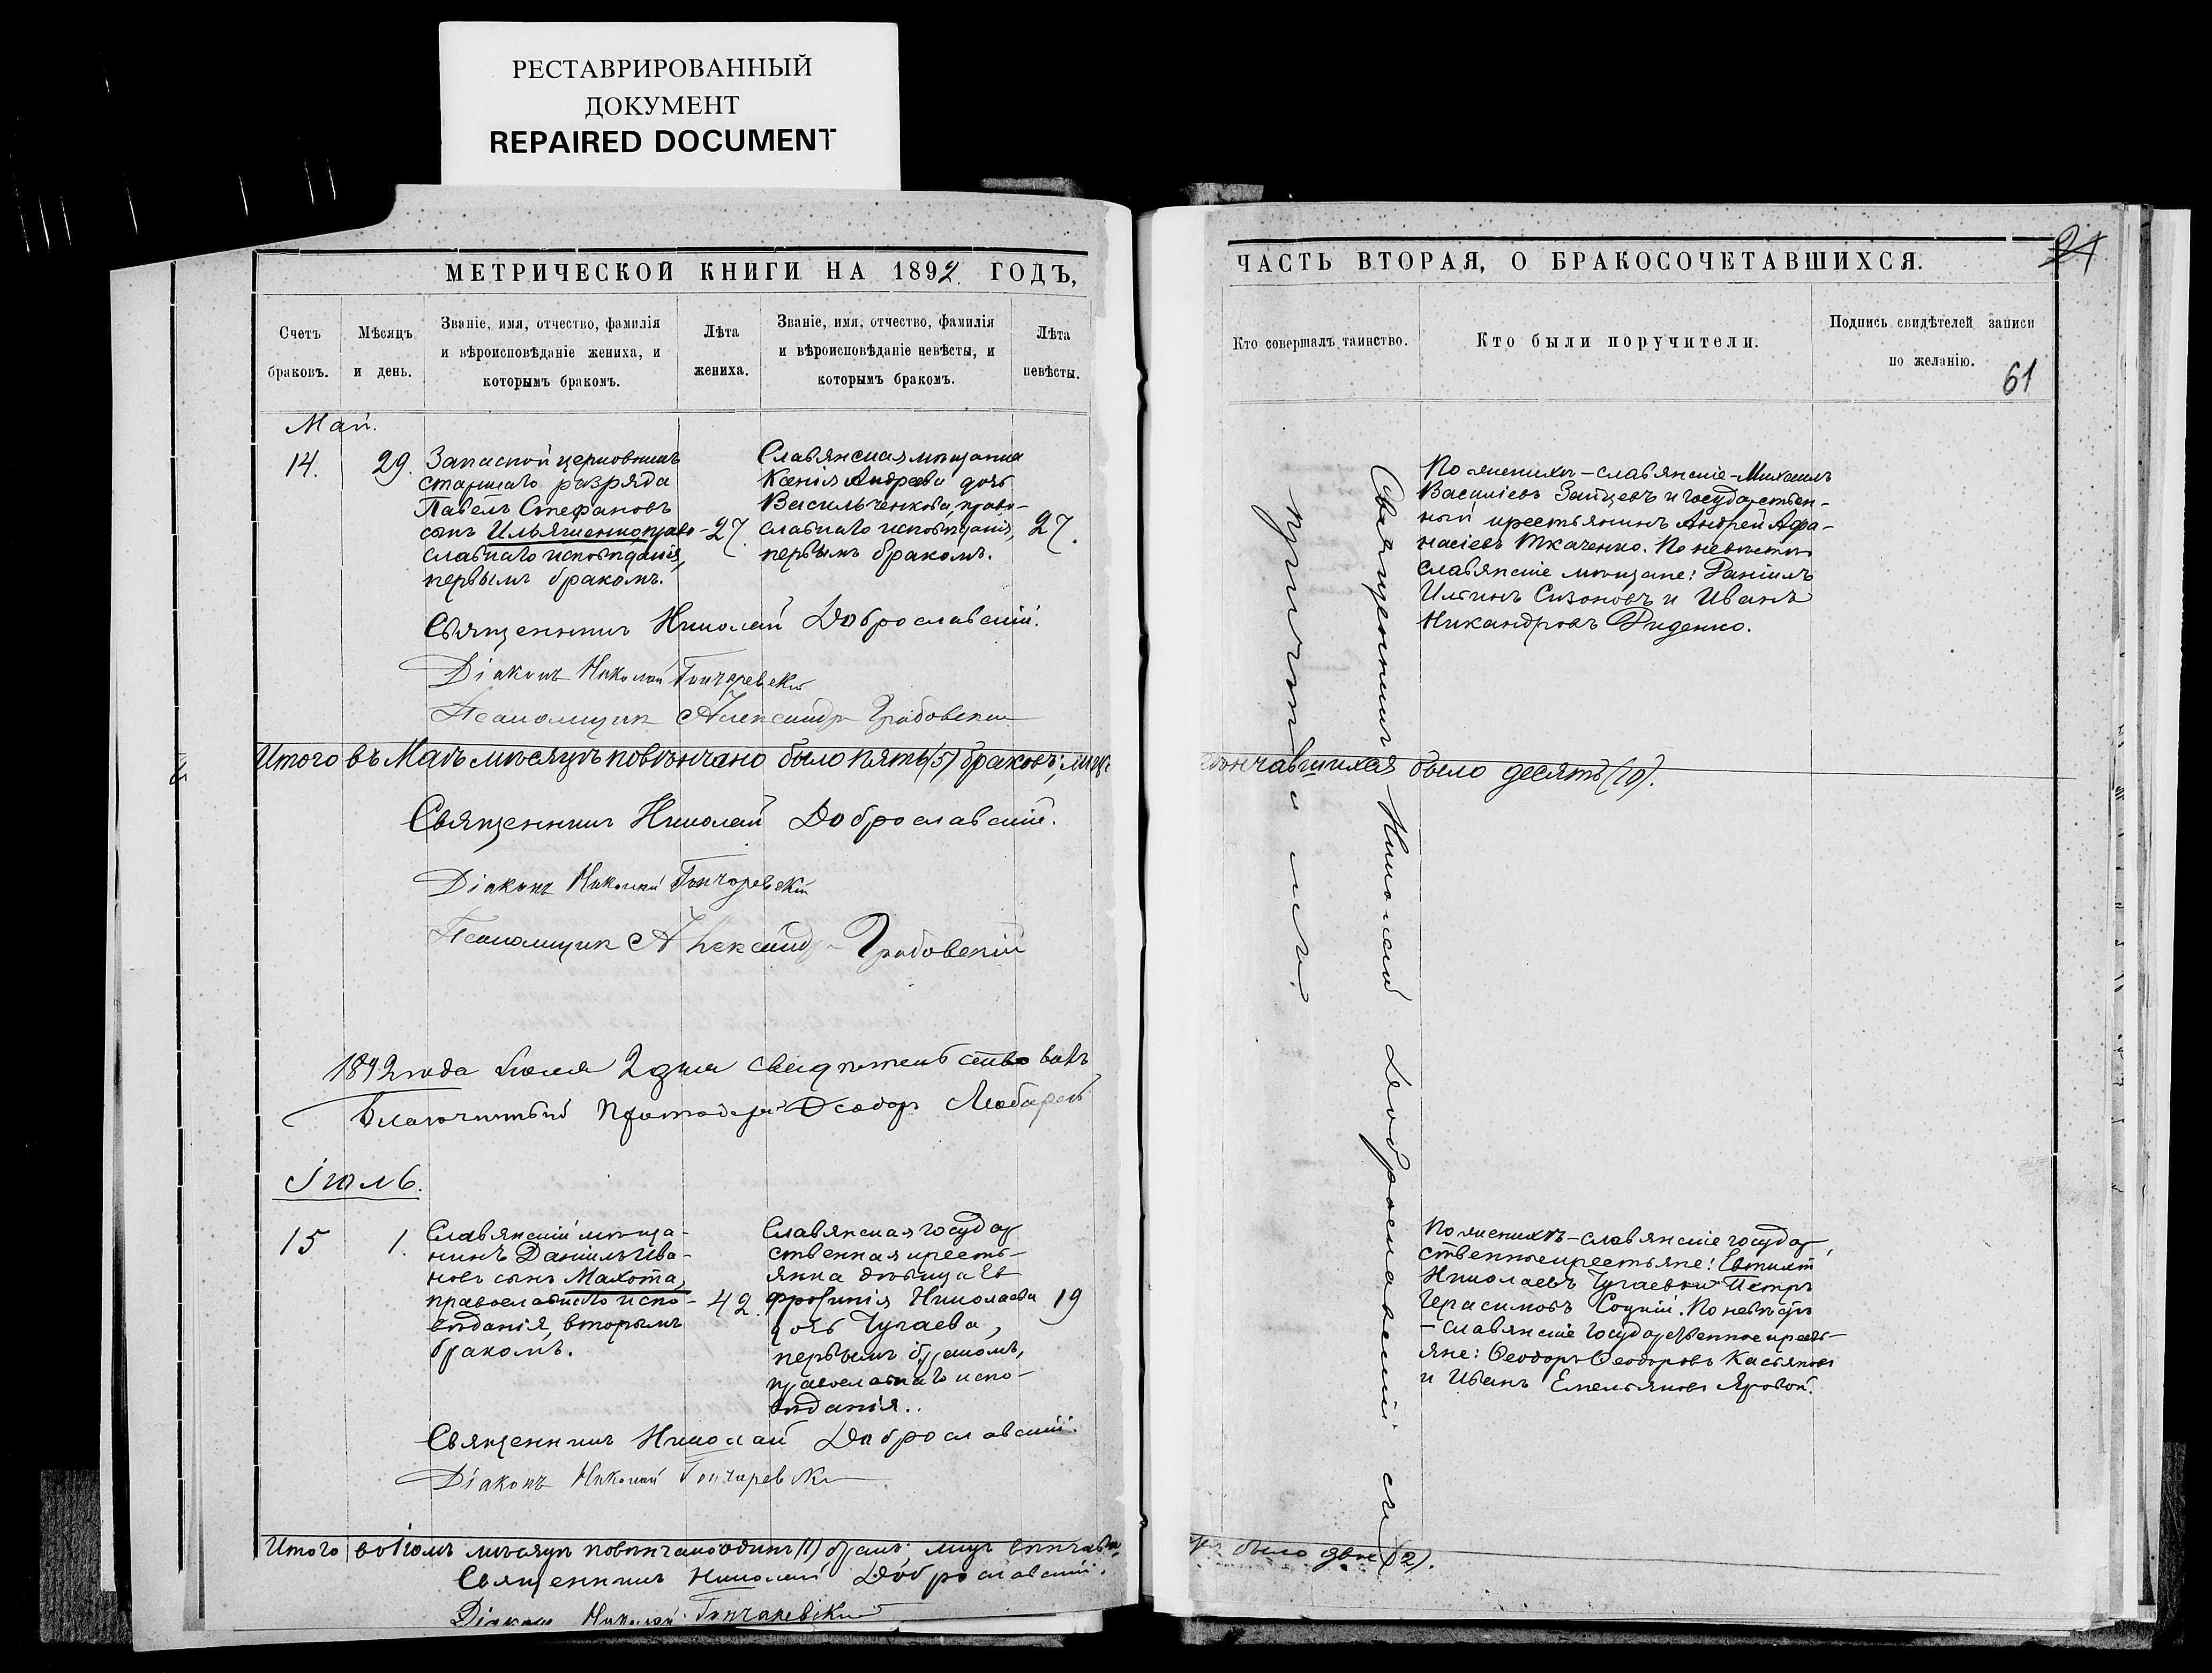 РЕСТАВРИРОВАННЫЙ
ДОКУМЕНТ
REPAIRED DOCUMENT
МЕТРИЧЕСКОЙ КНИГИ НА 1892 ГОДЪ,
Счетъ браковъ.
Мѣсяцъ и день.
Званіе, имя, отчество, фамилія
и вѣроисповѣданіе жениха, и
которымъ бракомъ.
Лѣта
жениха.
Званіе, имя, отчество, фамилія
и вѣроисповѣданіе невѣсты, и
которымъ бракомъ.
Лѣта
невѣсты.
Май.
14.
29.
Запасной церковникъ
старшаго разряда
Павелъ Стефановъ
сынъ Ильяшенко, право-
славнаго исповѣданія,
первымъ бракомъ.
27.
Славянская мѣщанка
Ксенія Андреева дочь
Васильченкова, право-
славнаго исповѣданія,
первымъ бракомъ.
27.
Священникъ Николай Доброславскій.
Діаконъ Николай Гончаревскій
Псаломщик Александр Грабовскій
Итого въ Маѣ мѣсяцѣ повѣнчано было пять (5) браковъ; лицъ
Священникъ Николай Доброславскій.
Діаконъ Николай Гончаревскій
Псаломщик Александр Грабовскій
1892 года Іюля 2 дня свидѣтельствовалъ
Благочинный Протоіерей Ѳеодоръ
Іюль.
15
1.
Славянскій мѣща-
нинъ Даніилъ Ива-
новъ сынъ Махота,
православнаго испо-
вѣданія, вторымъ
бракомъ.
42.
Славянская государ
ственная кресть-
янка дѣвица Ев
фросинія Николаева
дочь Чугаева,
первымъ бракомъ,
православнаго испо-
вѣданія.
19
Священникъ Николай Доброславскій.
Діаконъ Николай Гончаревскій
Итого въ Іюлѣ мѣсяцѣ повѣнчано одинъ (1) бракъ; лицъ вѣнчав
Священникъ Николай Доброславскій.
Діаконъ Николай Гончаревскій
ЧАСТЬ ВТОРАЯ, О БРАКОСОЧЕТАВШИХСЯ.
Кто совершалъ таинство.
Кто были поручители.
Подпись свидѣтелей записи
по желанію.
61
Священникъ Николай Доброславскій съ
причтомъ
По женихѣ – славянскіе – Михаилъ
Василіевъ Зайцевъ и государствен-
ный крестьянинъ Андрей Афа-
насіевъ Ткаченко. По невѣстѣ
славянскіе мѣщане: Даніилъ
Илiинъ Сизоновъ и Иванъ
Никандровъ Диденко.
вѣнчавшихся было десять (10).
По женихѣ – славянскіе государ
ственные крестьяне: Евтихій
Николаевъ Чугаевъ и Петръ
Герасимовъ Соцкій. По невѣстѣ
– славянскіе государственные кресть-
яне: Ѳеодоръ Ѳеодоровъ Касьяновъ
и Иванъ Емельяновъ Яровой.
было двое (2).